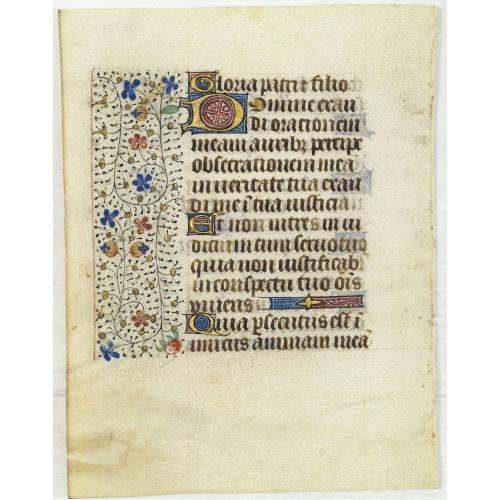 Gloria patri et filio
Domine exau
di orationem
meam auribꝫ percipe
obsecrationem meā
in veritate tua exau
di me ī tua iusticia
Et non intres in iu
dicium cum servo tuo
quia non iustificabit̄
in conspectu tuo oīs
vivens
Quia ꝑsecutus est ī
imicus animam meā